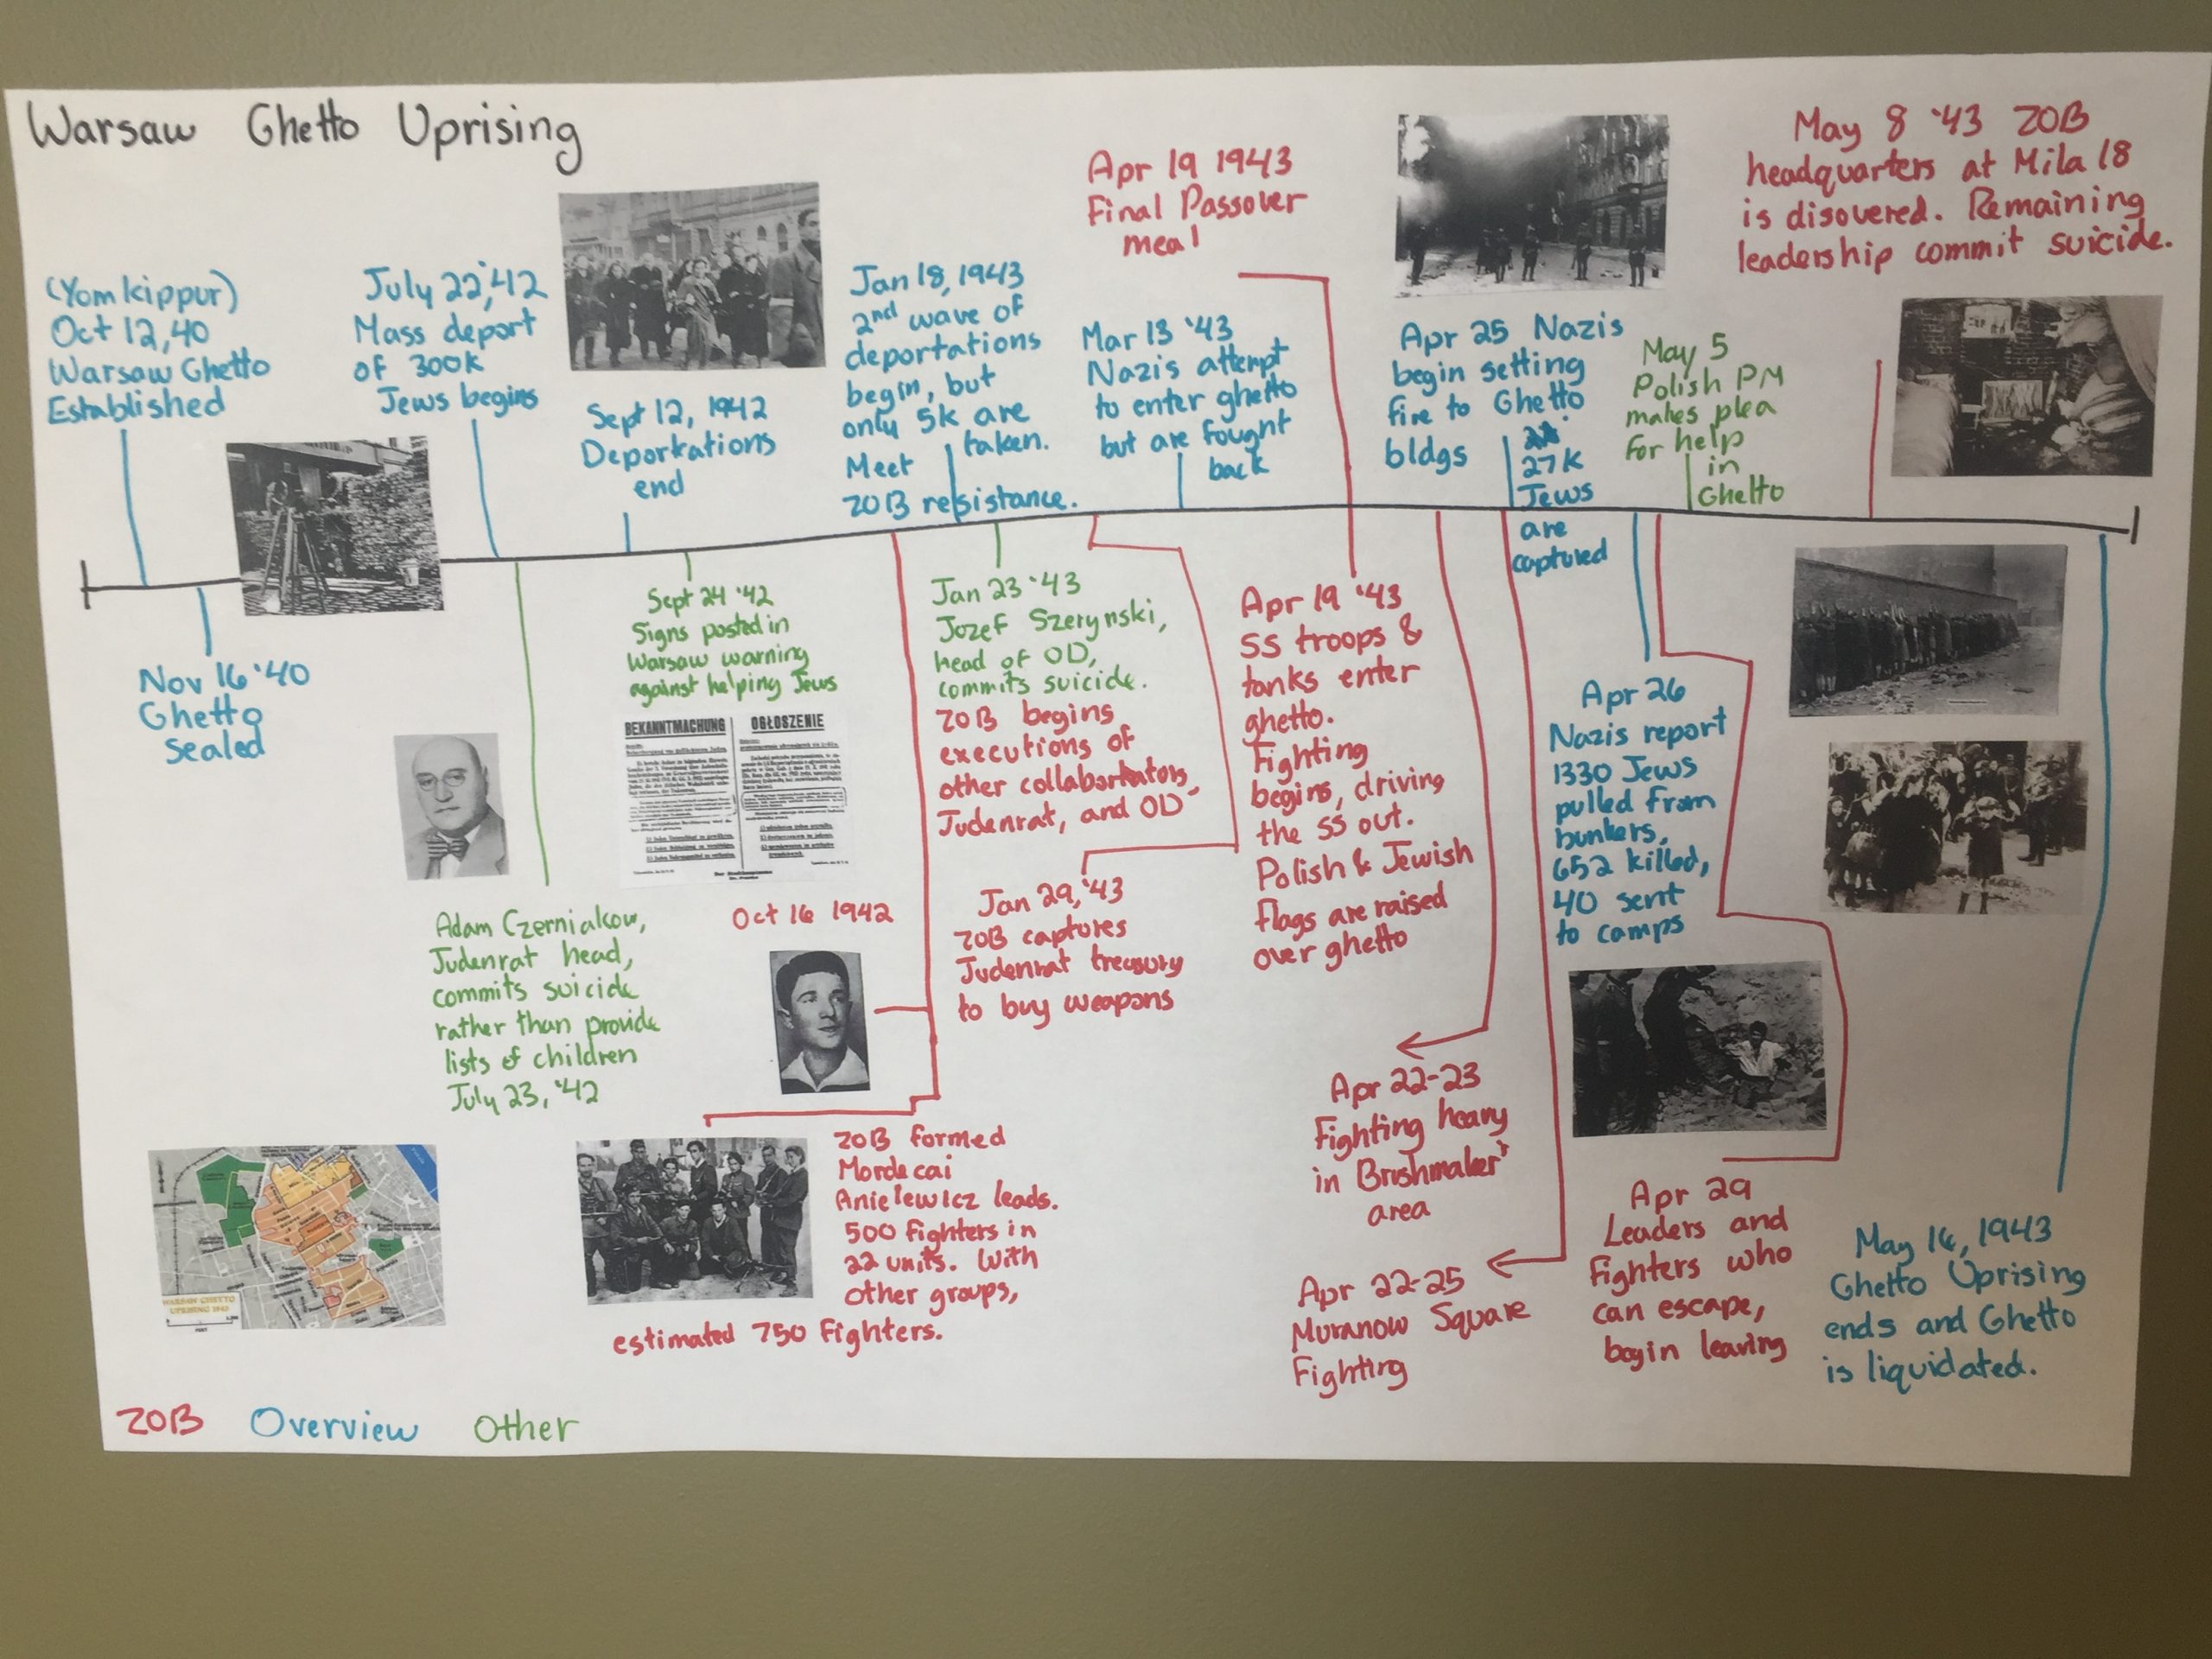 Warsaw Ghetto Uprising
(Yom kippur)
Oct 12, 40
Warsaw Ghetto
Established
Nov 16 '40
Ghetto
Sealed
July 22, '42
Mass deport
of 300k
Jews begins
Adam Czerniakow,
Judenrat head,
commits suicide
rather than provide
lists of children
July 23, '42
Sept 12, 1942
Deportations
end
Sept 24 '42
Signs posted in
Warsaw warning
against helping Jews
BEKANNTMACHUNG
OGŁOSZENIE
Oct 16 1942
ZOB formed
Mordecai
Anielewicz leads.
500 fighters in
22 units. With
other groups,
estimated 750 fighters.
Jan 18, 1943
2nd wave of
deportations
begin, but
only 5k are
taken.
Meet
ZOB resistance.
Jan 23 '43
Jozef Szerynski,
head of OD,
commits suicide.
ZOB begins
executions of
other collaborators,
Judenrat, and OD
Jan 29, '43
ZOB captures
Judenrat treasury
to buy weapons
Mar 13 '43
Nazis attempt
to enter ghetto
but are fought
back
Apr 19 1943
Final Passover
meal
Apr 19 '43
SS troops &
tanks enter
ghetto.
Fighting
begins, driving
the SS out.
Polish & Jewish
Flags are raised
over ghetto
Apr 22-23
Fighting heavy
in Brushmaker's
area
Apr 22-25
Muranow Square
Fighting
Apr 25 Nazis
begin setting
fire to Ghetto
bldgs
27K
Jews
are
captured
Apr 26
Nazis report
1330 Jews
pulled from
bunkers,
652 killed,
40 sent
to camps
Apr 29
Leaders and
Fighters who
can escape,
begin leaving
May 5
Polish PM
makes plea
for help
in
Ghetto
May 8 '43 ZOB
headquarters at Mila 18
is disovered. Remaining
leadership commit suicide.
May 16, 1943
Ghetto Uprising
ends and Ghetto
is liquidated.
WARSAW GHETTO
UPRISING 1943
ZOB Overview Other